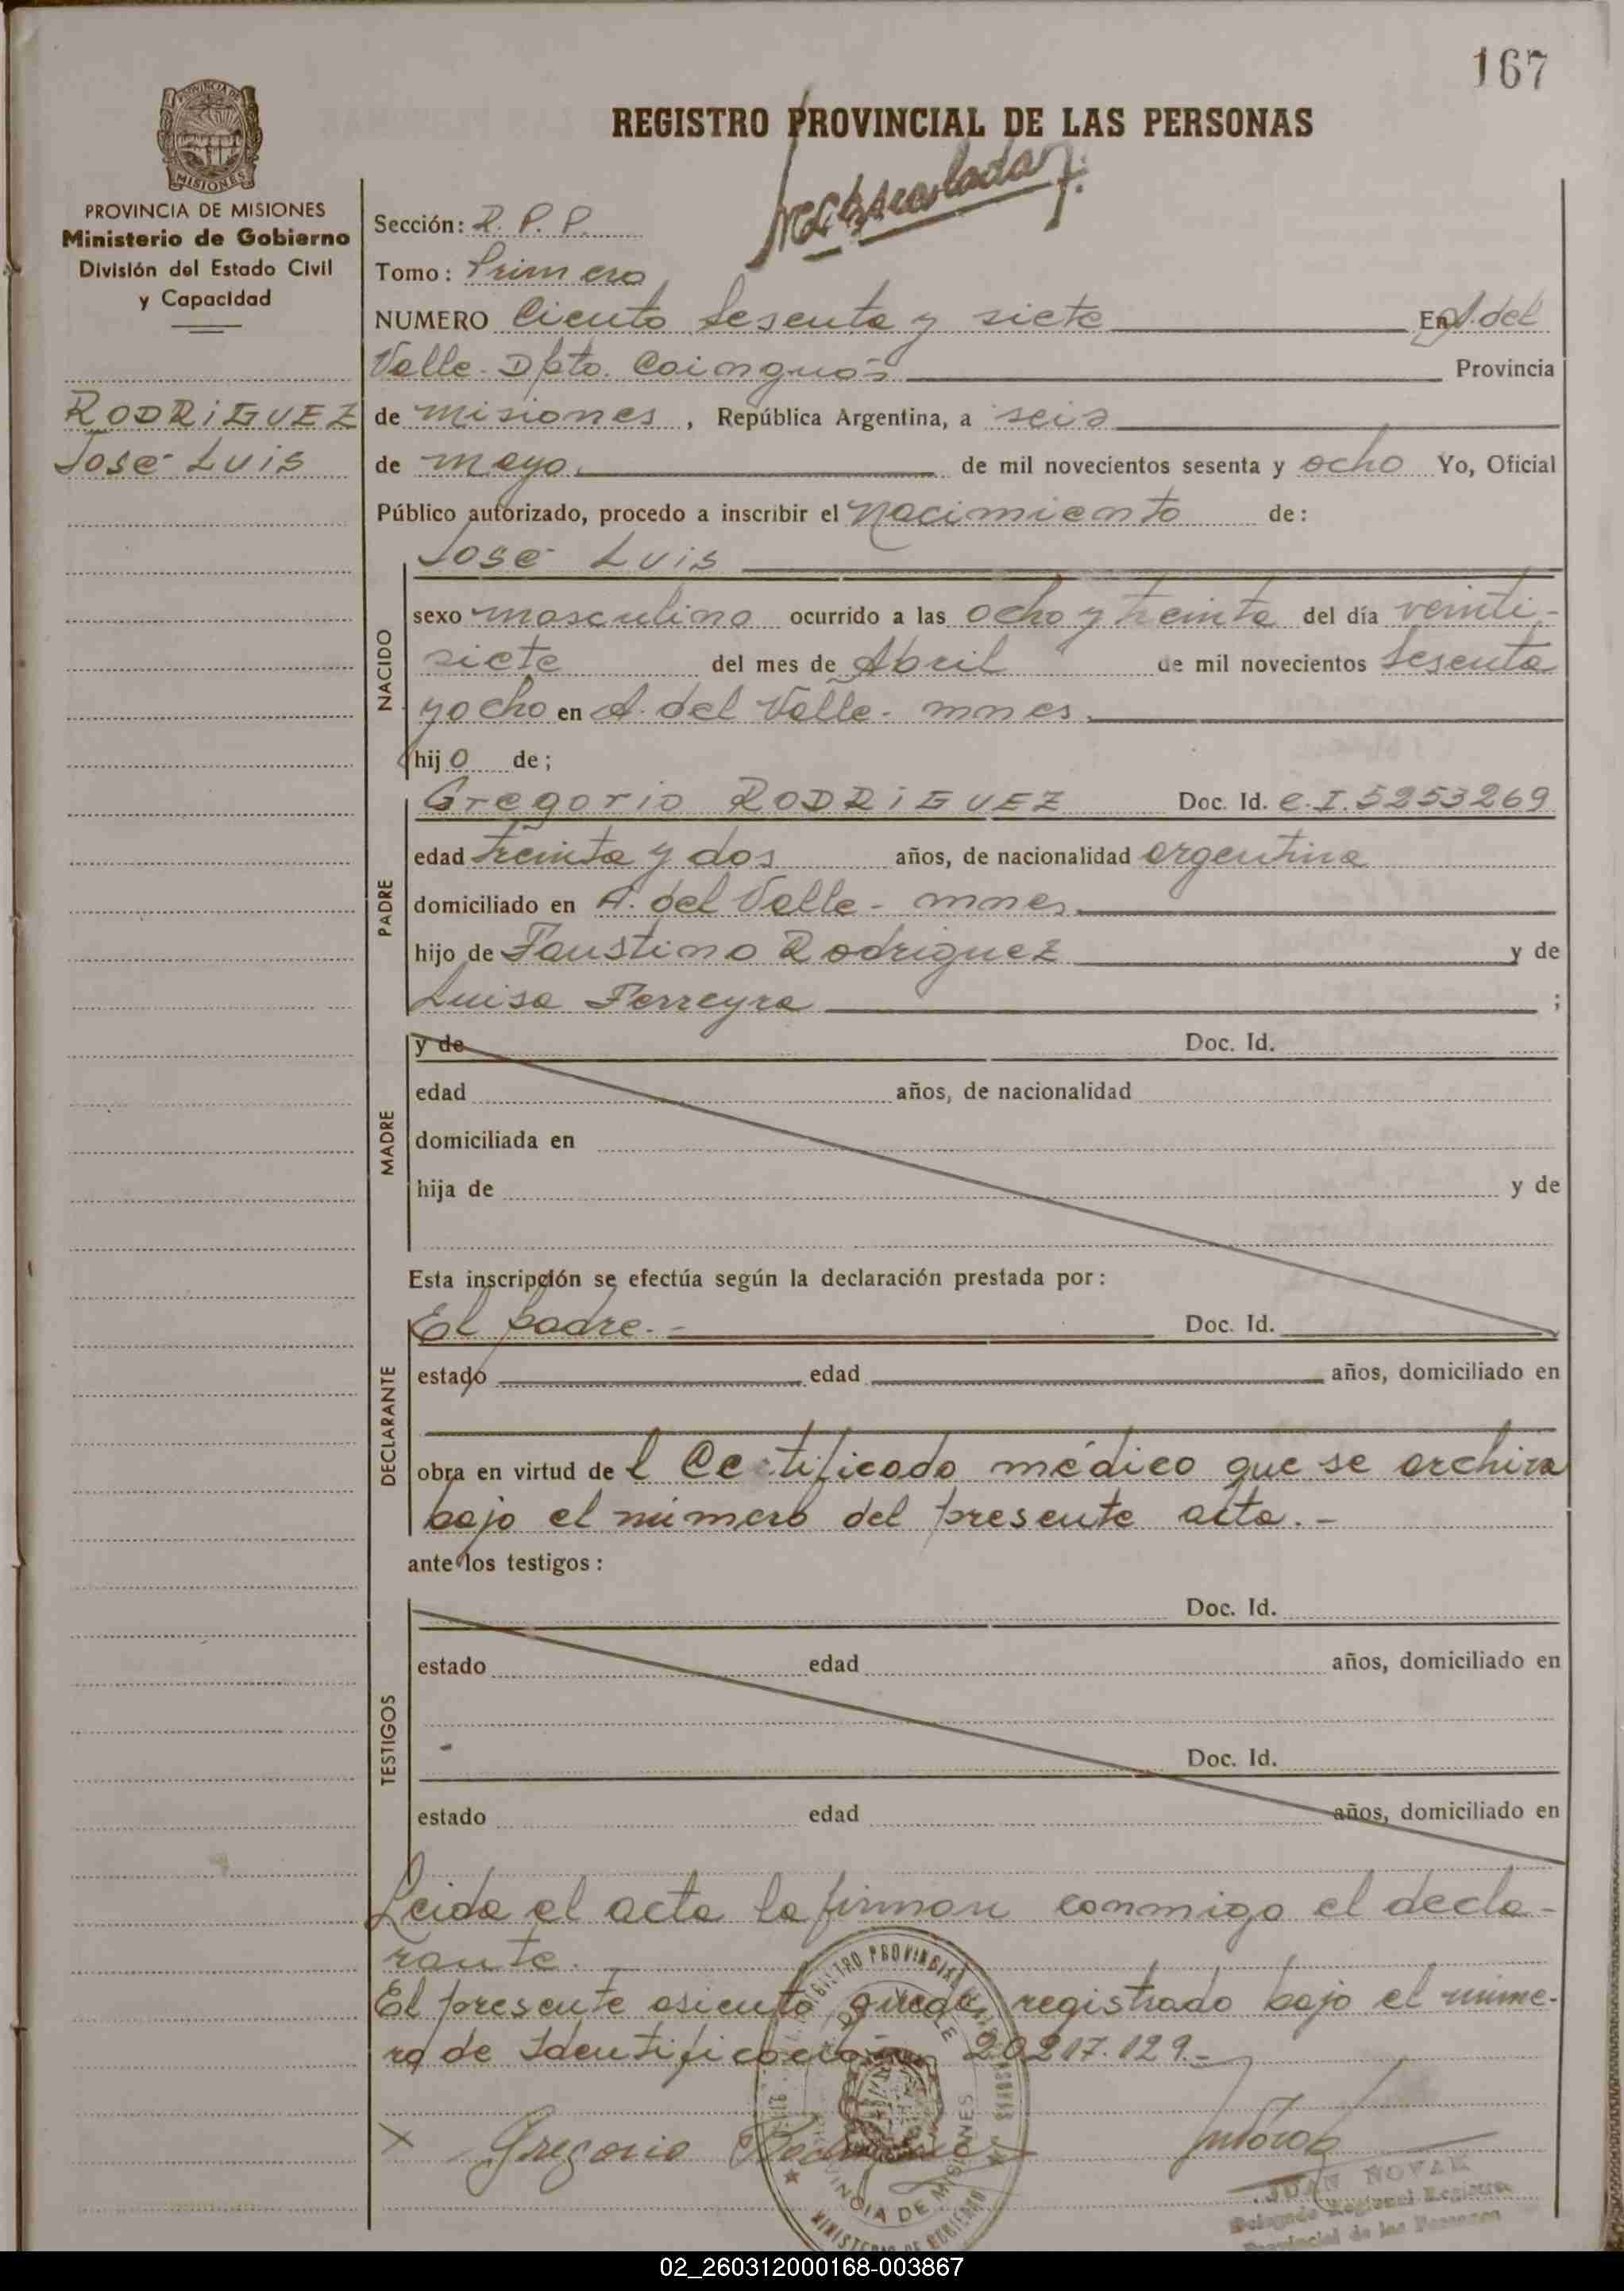 167
REGISTRO PROVINCIAL DE LAS PERSONAS
PROVINCIA DE
MISIONES
PROVINCIA DE MISIONES
Ministerio de Gobierno
División del Estado Civil
y Capacidad
RODRiGUEZ
José Luis
Sección: R. P. P.
Tomo: Primero
NUMERO Ciento Sesenta y siete En A. del
Valle - Dpto. Cainguás Provincia
de Misiones, República Argentina, a seis
de mayo. de mil novecientos sesenta y ocho Yo, Oficial
Público autorizado, procedo a inscribir el Nacimiento de:
José Luis
NACIDO
sexo masculino ocurrido a las ocho y treinta del día veinti-
siete del mes de Abril de mil novecientos Sesenta
y ocho en A. del Valle - mnes.
hijo de;
PADRE
Gregorio RODRiGUEZ Doc. Id. C.I. 5253269
edad treinta y dos años, de nacionalidad argentina
domiciliado en A. del Valle - mnes.
hijo de Faustino Rodriguez y de
Luisa Ferreyra ;
MADRE
y de Doc. Id.
edad años, de nacionalidad
domiciliada en
hija de y de
Esta inscripción se efectúa según la declaración prestada por:
DECLARANTE
El padre.- Doc. Id.
estado edad años, domiciliado en
obra en virtud del Certificado médico que se archiva
bajo el número del presente acta.-
ante los testigos:
TESTIGOS
Doc. Id.
estado edad años, domiciliado en
Doc. Id.
estado edad años, domiciliado en
Leida el acta la firman conmigo el decla-
rante.
El presente asiento queda registrado bajo el núme-
ro de Identificación 20.217.129.-
X Gregorio Rodriguez
JUAN NOVAK
Delegado Regional Registro
Provincial de las Personas
PROVINCIA DE MISIONES
MINISTERIO DE GOBIERNO
02_260312000168-003867